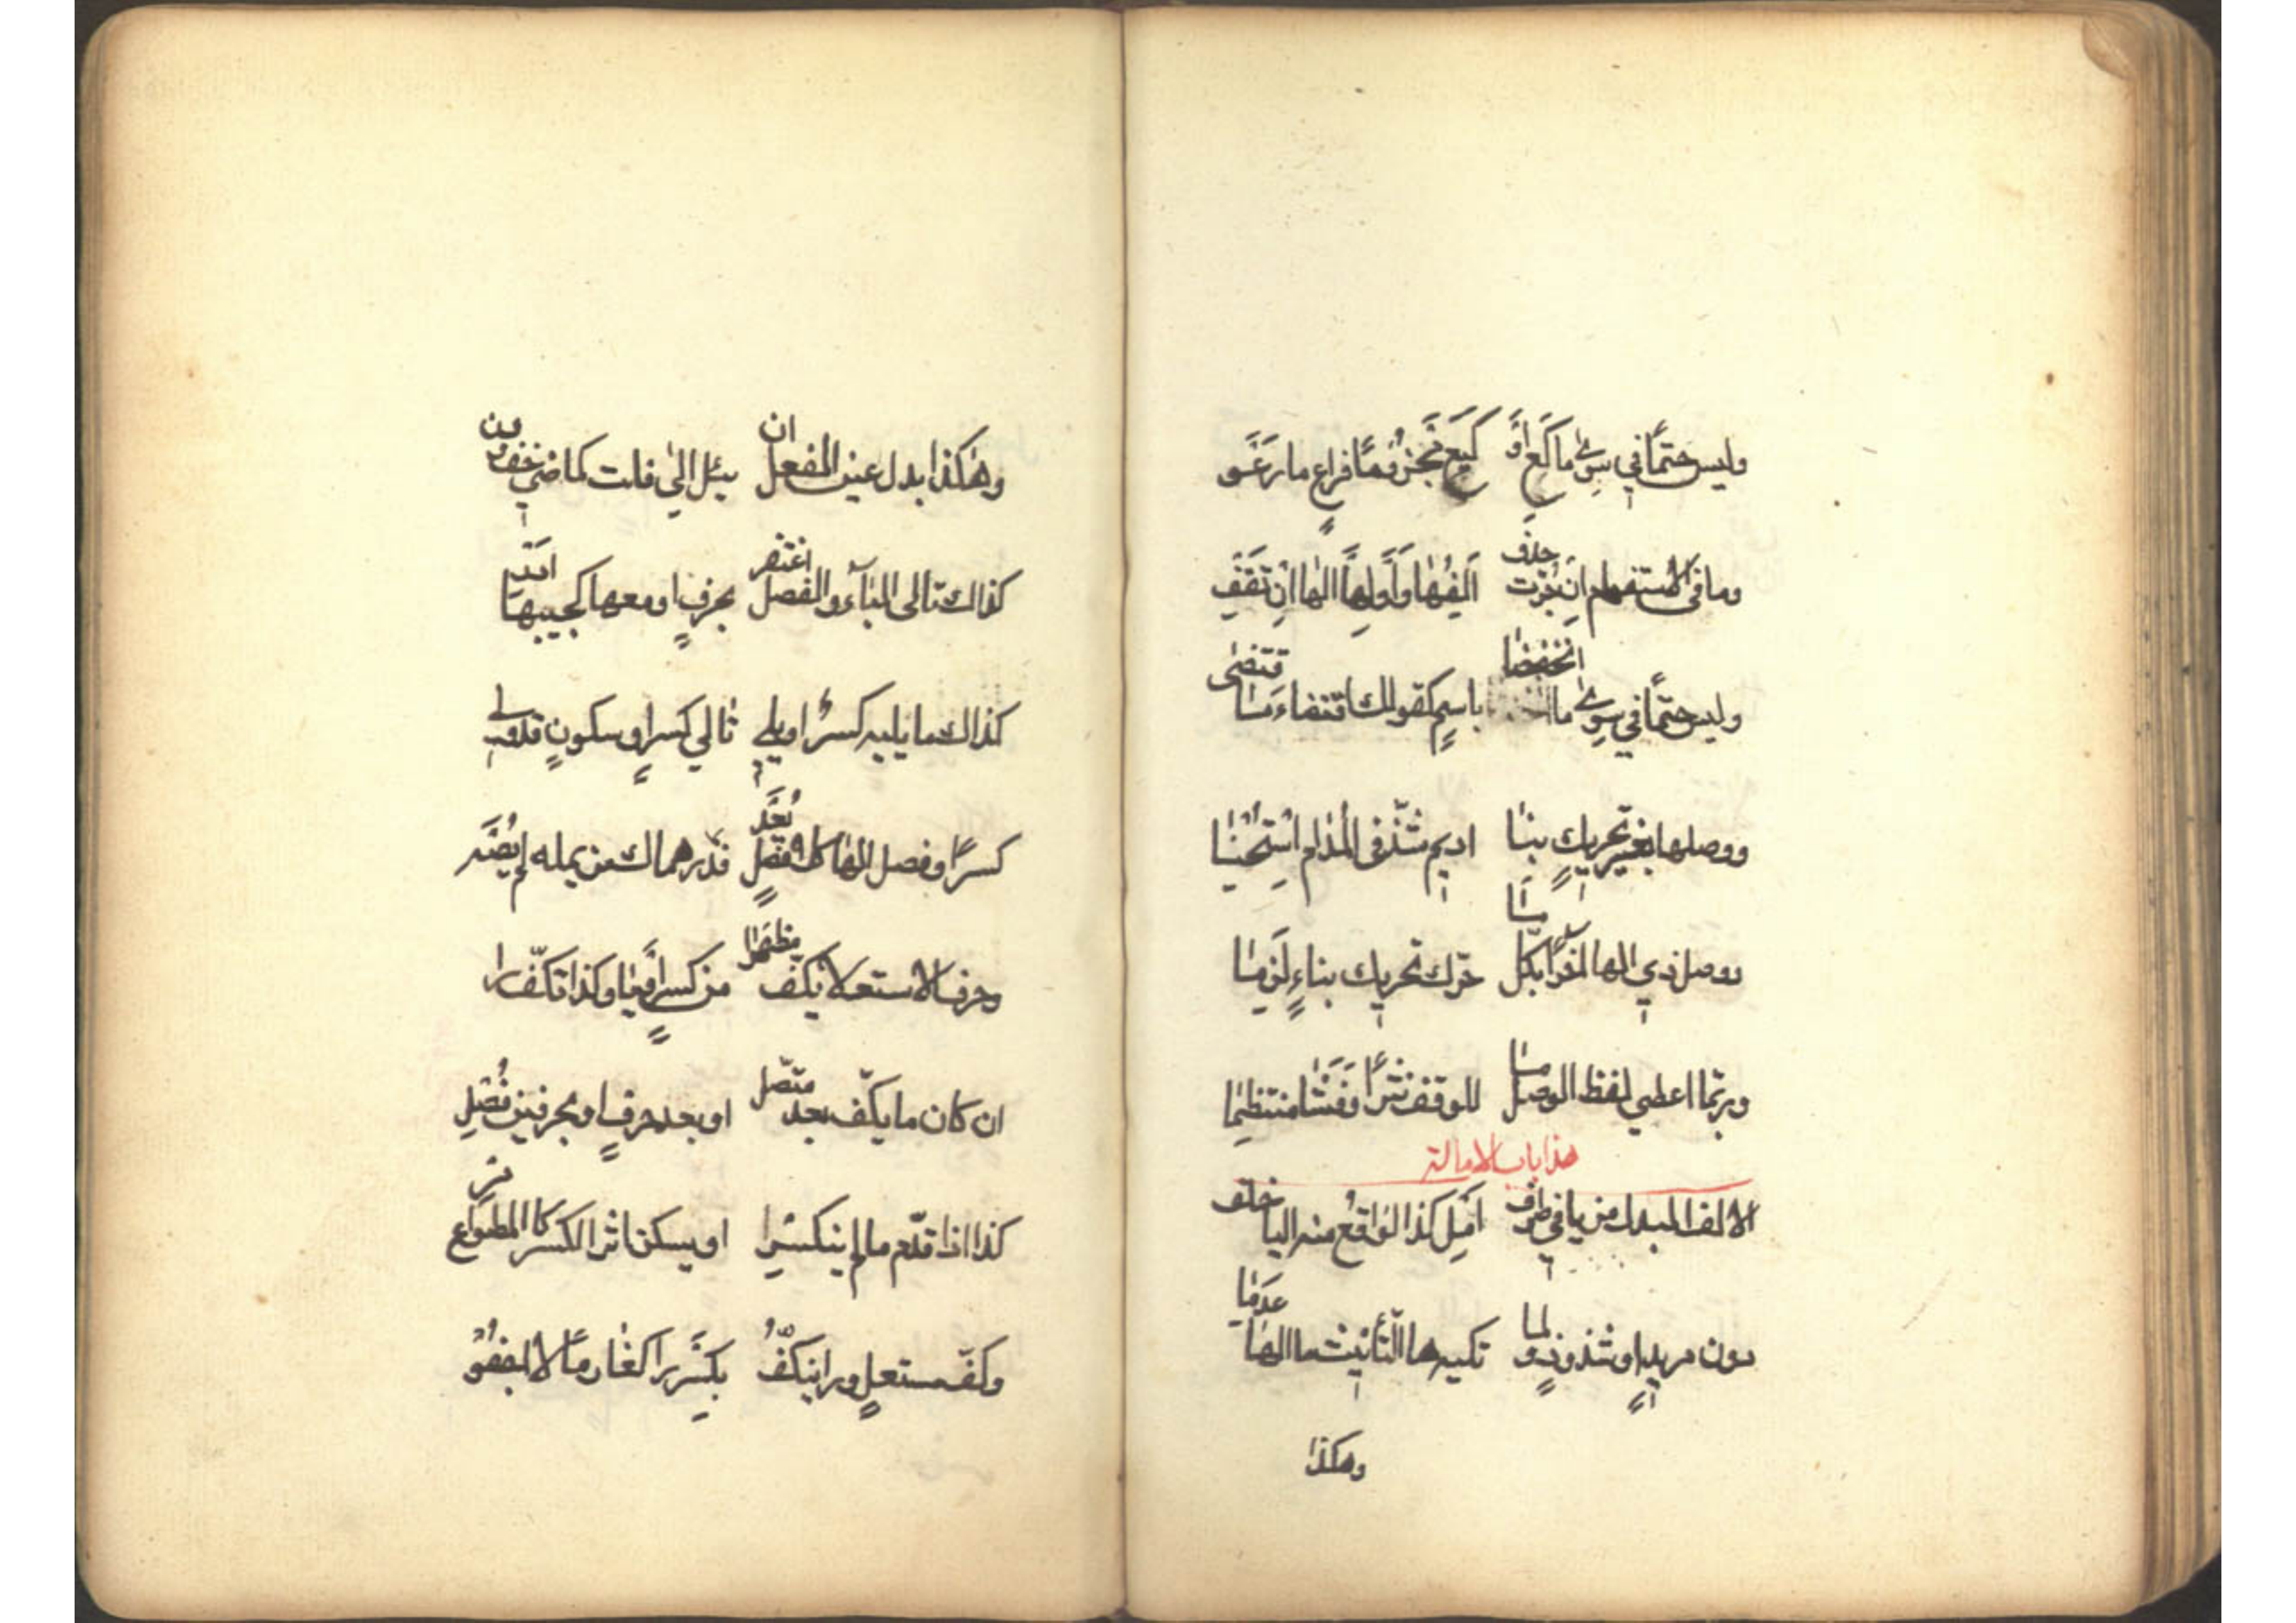 وليس حتمًا في سوى ما كَعِ أوْ كَيَعِ مَجْزُومًا فراعِ ما رَعَوْا
وما في الاستفهام إن جُرَّت حذف اَلِفُهَا وَأَوْلِهَا الها إنْ تَقِفْ
وليس حتمًا في سوى ما انخفضا باسمٍ كقولك اقتضاءَ مَا اقتضى
ووصلها بغير تحريك بنا اديم شذّ في المدام استُحْسِنا
ووصل ذي الها أجز بكل ما حرّك تحريك بناءٍ لَزِمَا
وربّما اعطي لفظ الوصل ما للوقف نثرًا وَفَشَا منتظِمَا
هذا باب الامالة
الالف المبدل من يا في طرف اَمِل كذا الواقعُ منه اليا خلف
دون مزيدٍ او شذوذٍ ولما تليه ها التّأنيث ما الها عَدِمَا
وهكذا
وهكذا بدل عين الفعل ان يئل الى فلت كماضي خف ودن
كذاك تالي الياء والفصل اغتفر بحرفٍ او مع ها كجيبها ادر
كذاك ما يليه كسرٌ او يلي تالي كسرٍ او سكونٍ قد ولي
كسرًا وفصل الها كلا فصلٍ يُعَد فدرهماك من يمله لم يُصَد
وحرف الاستعلا يكفّ مظهرا من كسرٍ او يا وكذا تكفّ را
ان كان ما يكفّ بعد متصل او بعد حرفٍ او بحرفين فُصِل
كذا اذا قدّم ما لم ينكسر او يسكن اثر الكسر كالمطواع مر
وكفّ مستعلٍ ورا ينكفُّ بكسر را كغارمًا لا اجفو